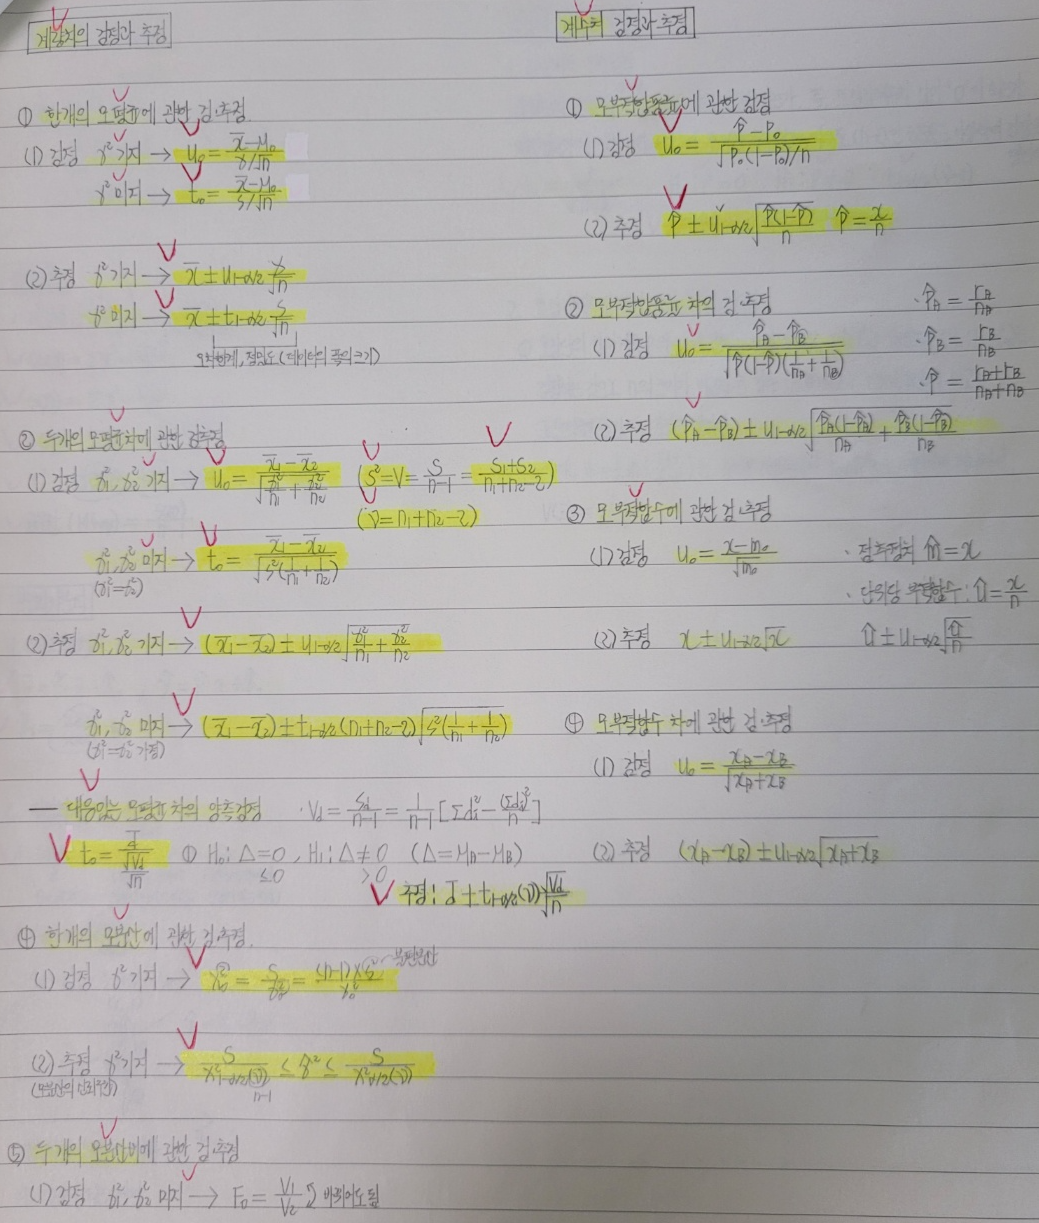 계량치의 검정과 추정
① 한개의 모평균에 관한 검·추정
(1) 검정 σ² 기지 → u₀ = (x̄-μ₀)/(σ/√n)
σ² 미지 → t₀ = (x̄-μ₀)/(s/√n)
(2) 추정 σ² 기지 → x̄ ± u₁₋α/₂ σ/√n
σ² 미지 → x̄ ± t₁₋α/₂ s/√n
오차한계, 정밀도 (데이터의 폭의 크기)
② 두개의 모평균차에 관한 검·추정
(1) 검정 σ₁², σ₂² 기지 → u₀ = (x̄₁-x̄₂)/√(σ₁²/n₁ + σ₂²/n₂) (s² = V = S/(n-1) = (S₁+S₂)/(n₁+n₂-2))
(ν = n₁+n₂-2)
σ₁², σ₂² 미지 → t₀ = (x̄₁-x̄₂)/√(s²(1/n₁ + 1/n₂))
(σ₁²=σ₂²)
(2) 추정 σ₁², σ₂² 기지 → (x̄₁-x̄₂) ± u₁₋α/₂ √(σ₁²/n₁ + σ₂²/n₂)
σ₁², σ₂² 미지 → (x̄₁-x̄₂) ± t₁₋α/₂(n₁+n₂-2) √(s²(1/n₁ + 1/n₂))
(σ₁²=σ₂² 가정)
— 대응있는 모평균 차의 양측검정 · Vd = Sd/(n-1) = 1/(n-1) [Σdᵢ² - (Σdᵢ)²/n]
t₀ = d̄/(√Vd/√n) ① H₀: Δ=0, H₁: Δ≠0 (Δ=μA-μB)
≤0 >0
추정: d̄ ± t₁₋α/₂(ν) √(Vd/n)
④ 한개의 모분산에 관한 검·추정.
(1) 검정 σ² 기지 → χ₀² = S/σ₀² = (n-1)×s²/σ₀² ~불편분산
(2) 추정 σ² 기지 → S/χ²₁₋α/₂(ν) ≤ σ² ≤ S/χ²α/₂(ν)
(모분산의 신뢰구간) n-1
⑤ 두개의 모분산비에 관한 검·추정
(1) 검정 σ₁², σ₂² 미지 → F₀ = V₁/V₂ 바뀌어도됨
계수치 검정과 추정
① 모부적합품률에 관한 검정
(1) 검정 u₀ = (p̂-P₀)/√(P₀(1-P₀)/n)
(2) 추정 p̂ ± u₁₋α/₂ √(p̂(1-p̂)/n) p̂ = x/n
② 모부적합품률 차의 검·추정 · p̂A = rA/nA
(1) 검정 u₀ = (p̂A-p̂B)/√(p̂(1-p̂)(1/nA + 1/nB)) · p̂B = rB/nB
· p̂ = (rA+rB)/(nA+nB)
(2) 추정 (p̂A-p̂B) ± u₁₋α/₂ √(p̂A(1-p̂A)/nA + p̂B(1-p̂B)/nB)
③ 모부적합수에 관한 검·추정
(1) 검정 u₀ = (x-m₀)/√m₀ · 점추정치 m̂ = x
· 단위당 부적합수: û = x/n
(2) 추정 x ± u₁₋α/₂ √x û ± u₁₋α/₂ √(û/n)
④ 모부적합수 차에 관한 검·추정
(1) 검정 u₀ = (xA-xB)/√(xA+xB)
(2) 추정 (xA-xB) ± u₁₋α/₂ √(xA+xB)